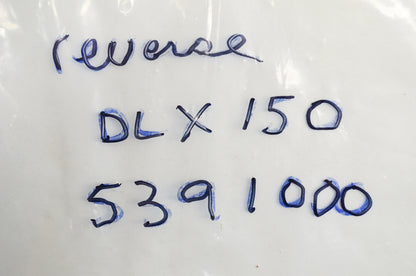 reverse
DLX 150
5391000